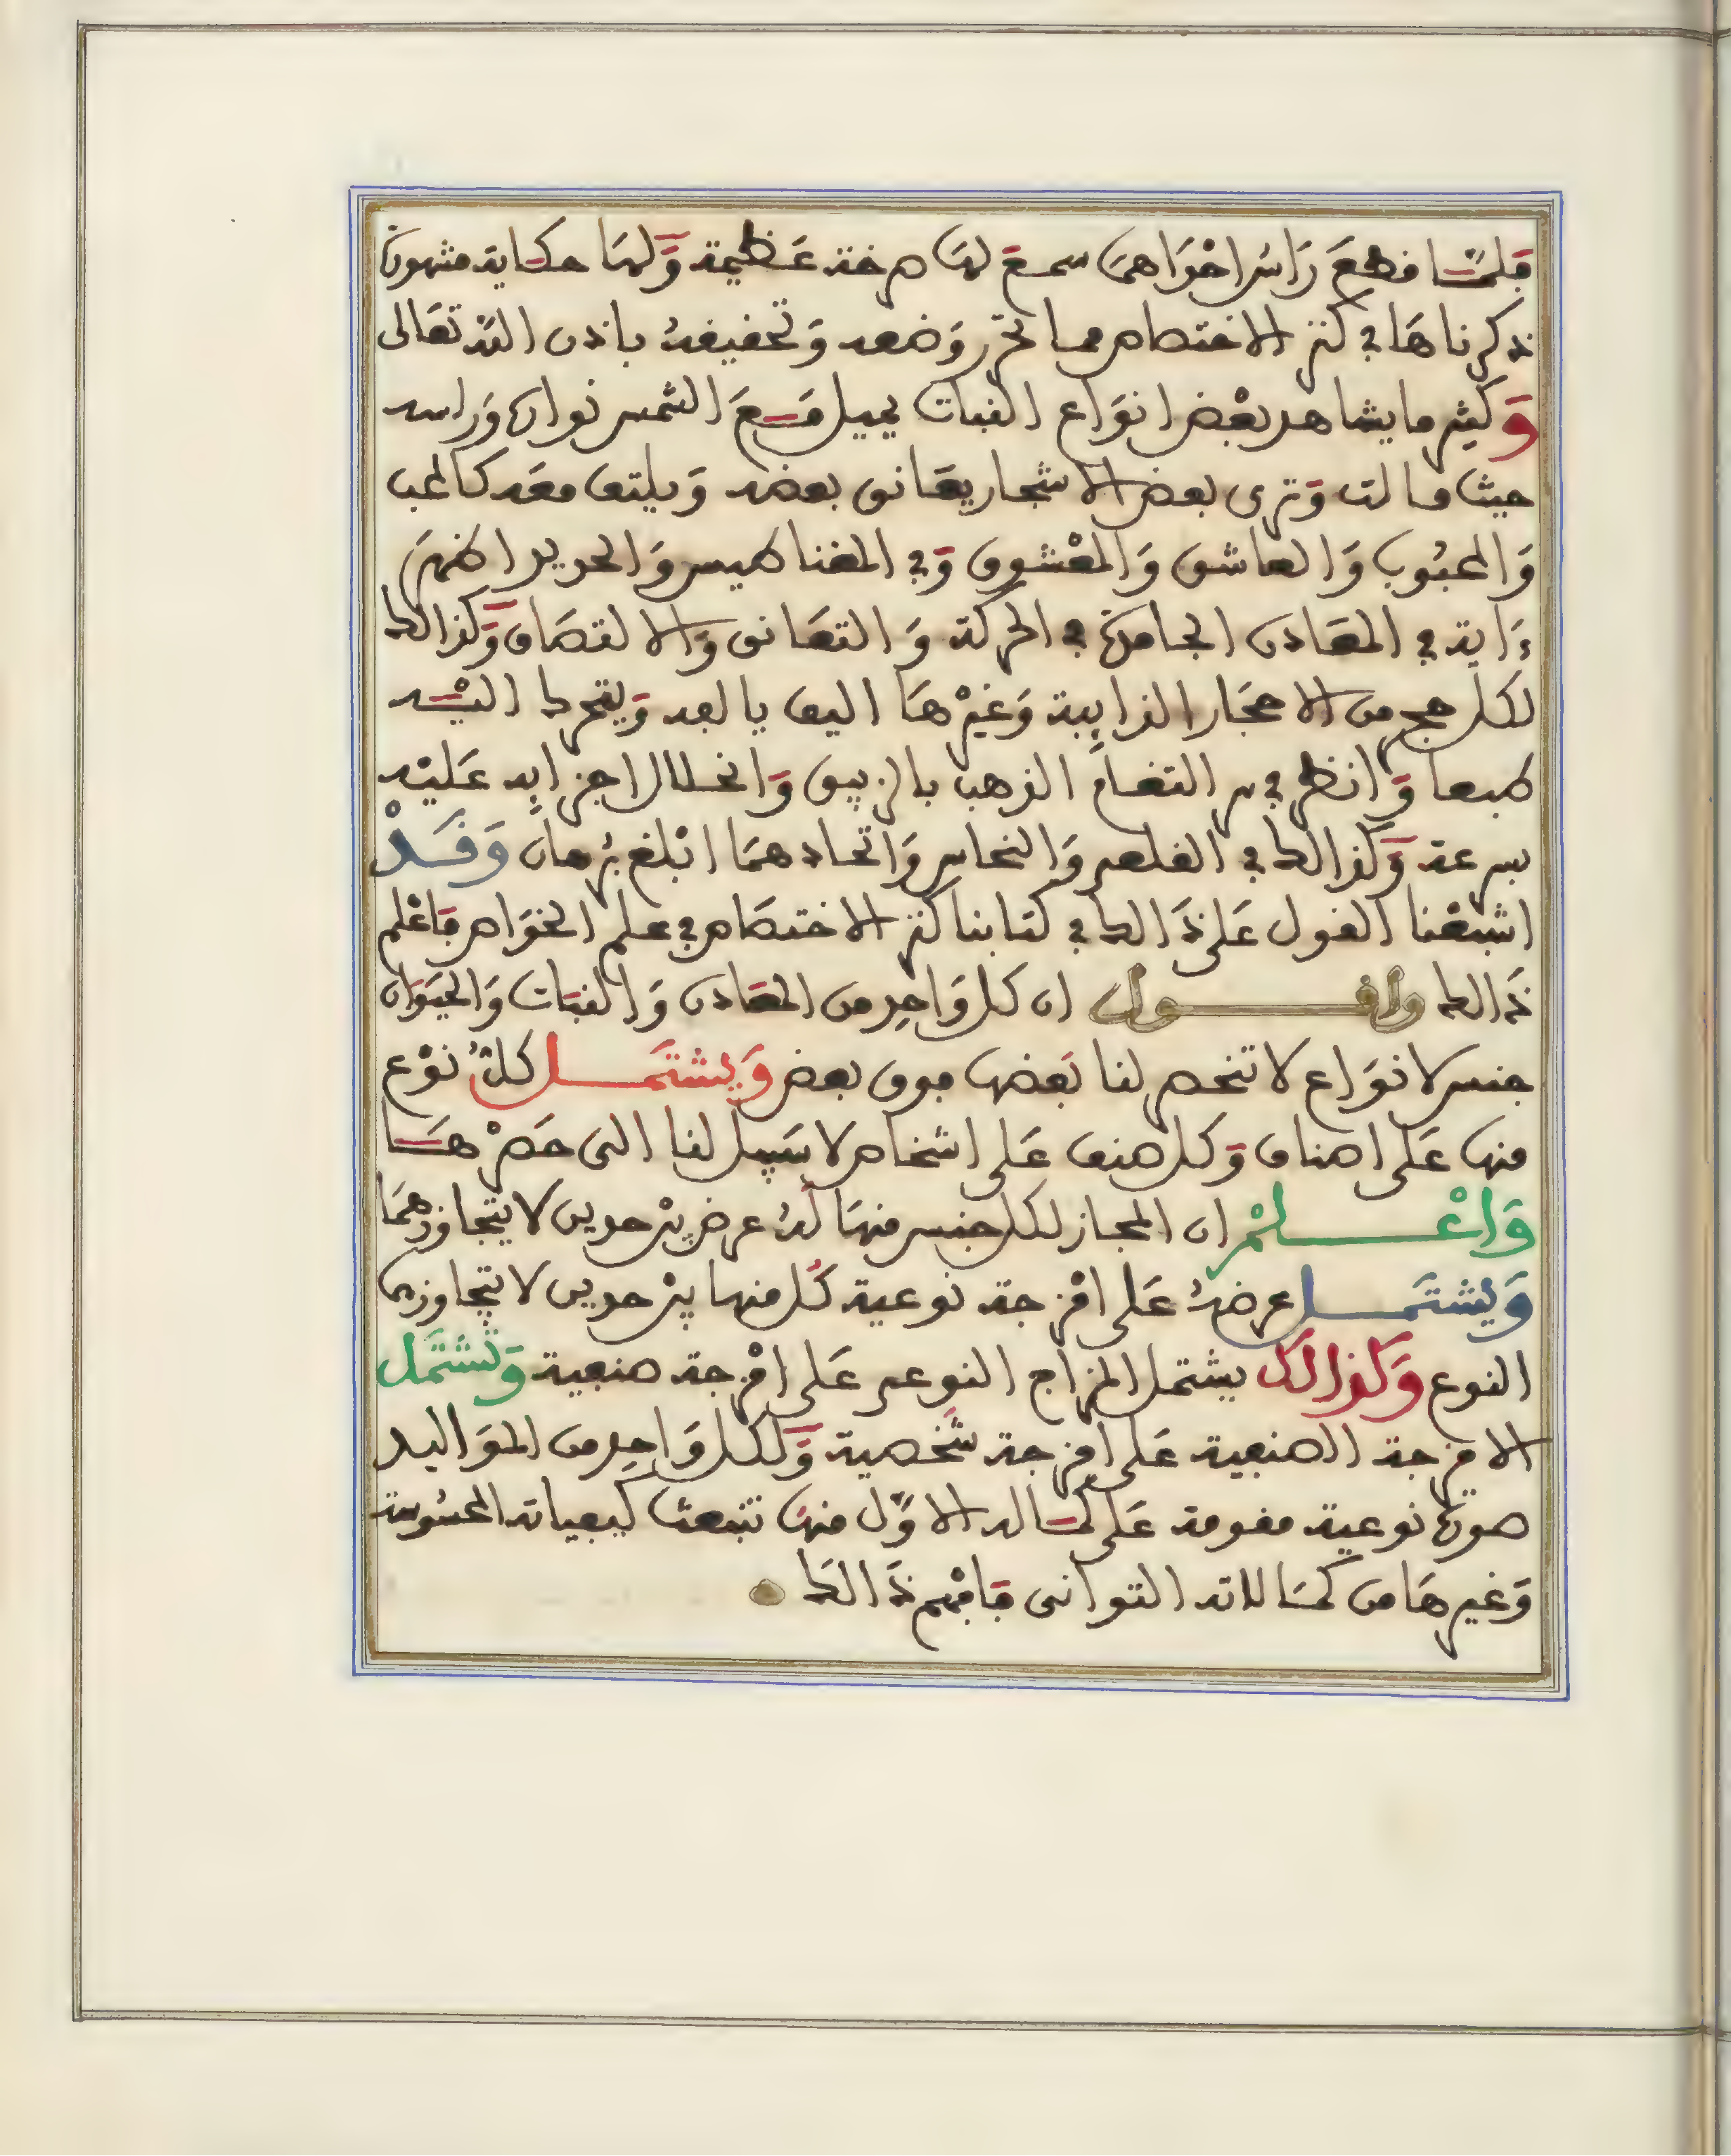 فلما قطع رأس احداهما سمع لها صرخة عظيمة ولها حكاية مشهورة
ذكرناها في كنز الاختصاص مما تحرر وضعه وتحقيقه باذن الله تعالى
وكثير ما يشاهد بعض انواع النبات يميل مع الشمس نواره وراسه
حيث مالت وترى بعض الاشجار يعانق بعضه ويلتف معه كالمحب
والمحبوب والعاشق والمعشوق وفي المغناطيس والحديد اظهر
ءاية في المعادن الجامدة في الحركة والتعانق والالتصاق وكذالك
لكل حجر من الاحجار الذايبة وغيرها اليف يالفه ويتحرك اليه
طبعا وانظر في سر التغام الذهب بالزيبق وانحلال اجزايه عليه
بسرعة وكذالك في القلعي والنحاس واتحادهما ابلغ برهان وقد
اشبعنا القول على ذالك في كتابنا كنز الاختصاص في علم الخواص فاعلم
ذالك واقول ان كل واحد من المعادن والنبات والحيوان
جنس لانواع لا تنحصر لنا بعضها فوق بعض ويشتمل كل نوع
منها على اصناف وكل صنف على اشخاص لا سبيل لنا الى حصرها
واعلم ان المجاز لكل جنس منها له عرض بين حدين لا يتجاوزهما
ويشتمل عرضه على امزجة نوعية كل منها بين حدين لا يتجاوزهما
النوع وكذالك يشتمل المزاج النوعي على امزجة صنفية وتشتمل
الامزجة الصنفية على امزجة شخصية ولكل واحد من المواليد
صورة نوعية مقومة على كماله الاول منها تنبعث كيفياته المحسوسة
وغيرها من كمالاته الثوانى فافهم ذالك